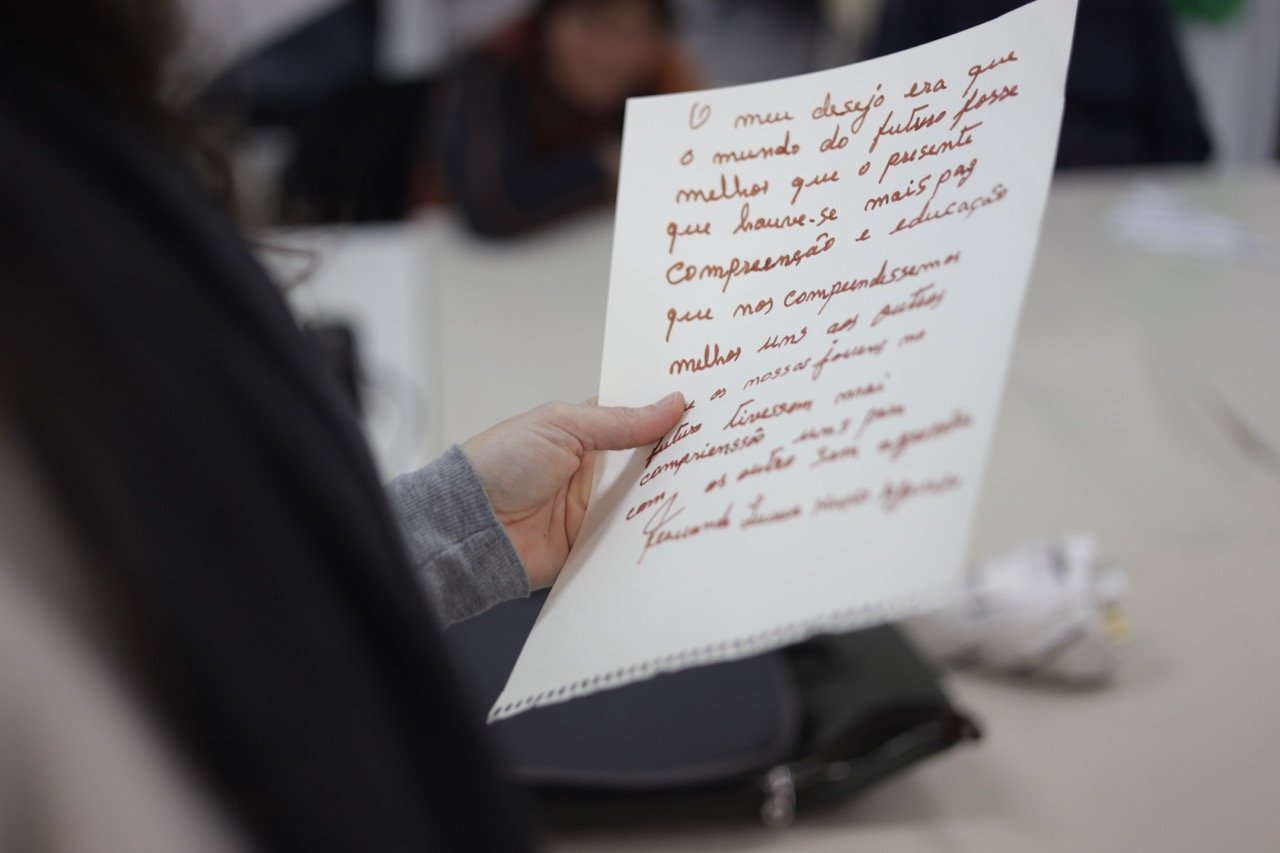 O meu desejo era que
o mundo do futuro fosse
melhor que o presente
que houve-se mais paz
compreenção e educação
que nos compeendessemos
melhor uns aos outros
os nossos jovens no
futuro tivessem mai
compriensão uns para
com os outro sem agressão